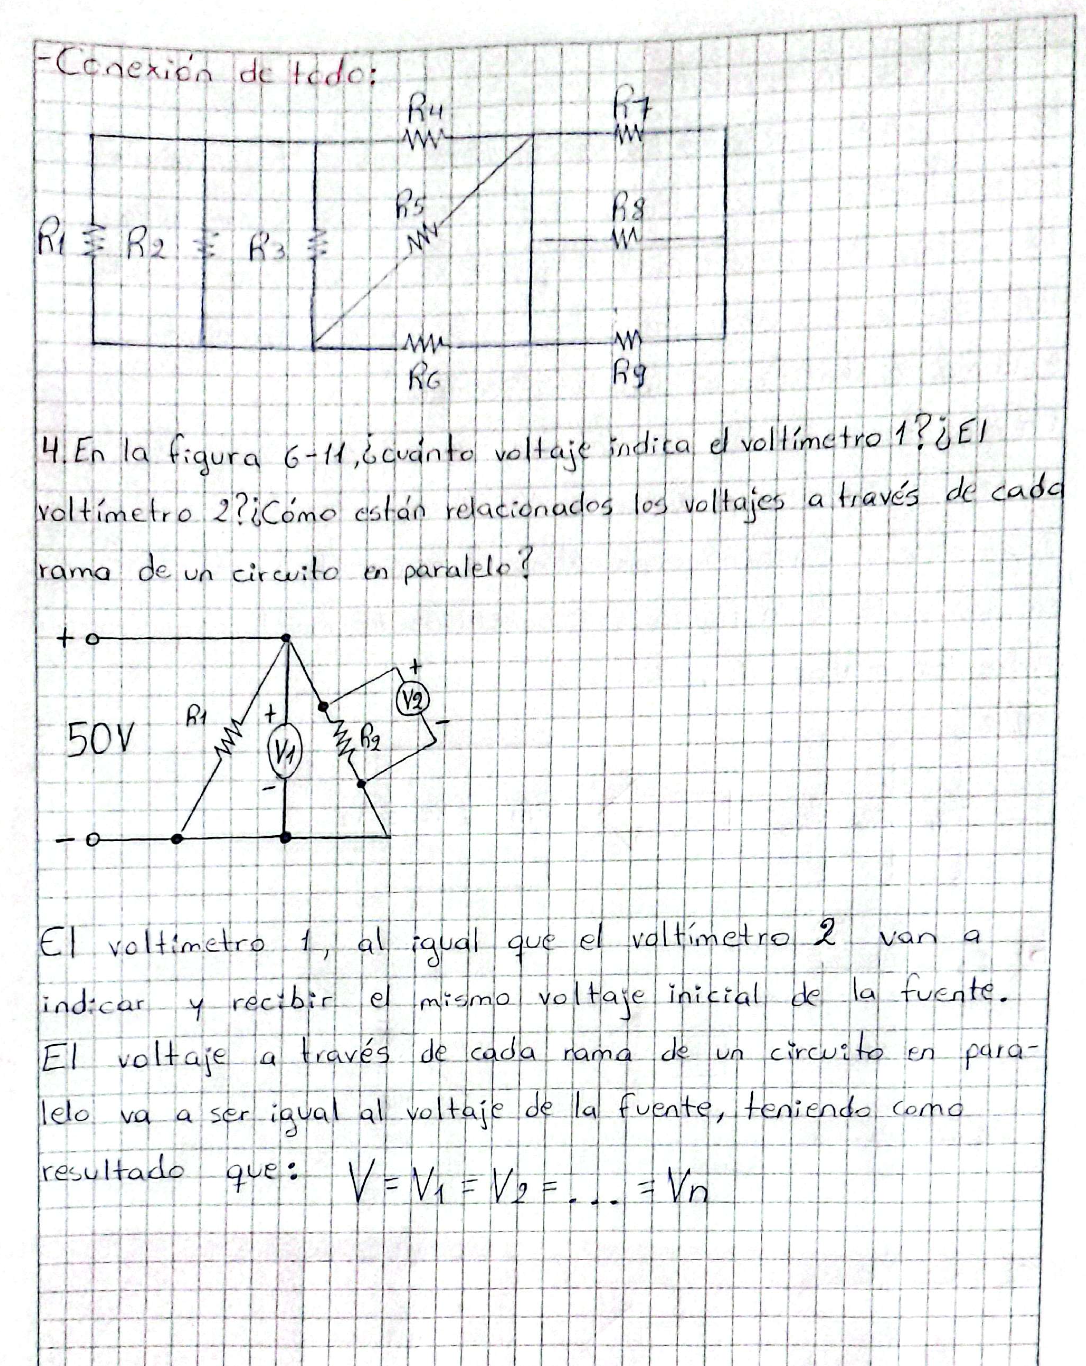 -Conexión de todo:
R4 R7
R5 R8
R1 R2 R3
R6 R9
4. En la figura 6-11, ¿cuánto voltaje indica el voltímetro 1? ¿El
voltímetro 2? ¿Cómo están relacionados los voltajes a través de cada
rama de un circuito en paralelo?
+
+
V2
R1 + -
50V V1 R2
-
-
El voltímetro 1, al igual que el voltímetro 2 van a
indicar y recibir el mismo voltaje inicial de la fuente.
El voltaje a través de cada rama de un circuito en para-
lelo va a ser igual al voltaje de la fuente, teniendo como
resultado que: V = V1 = V2 = . . . = Vn